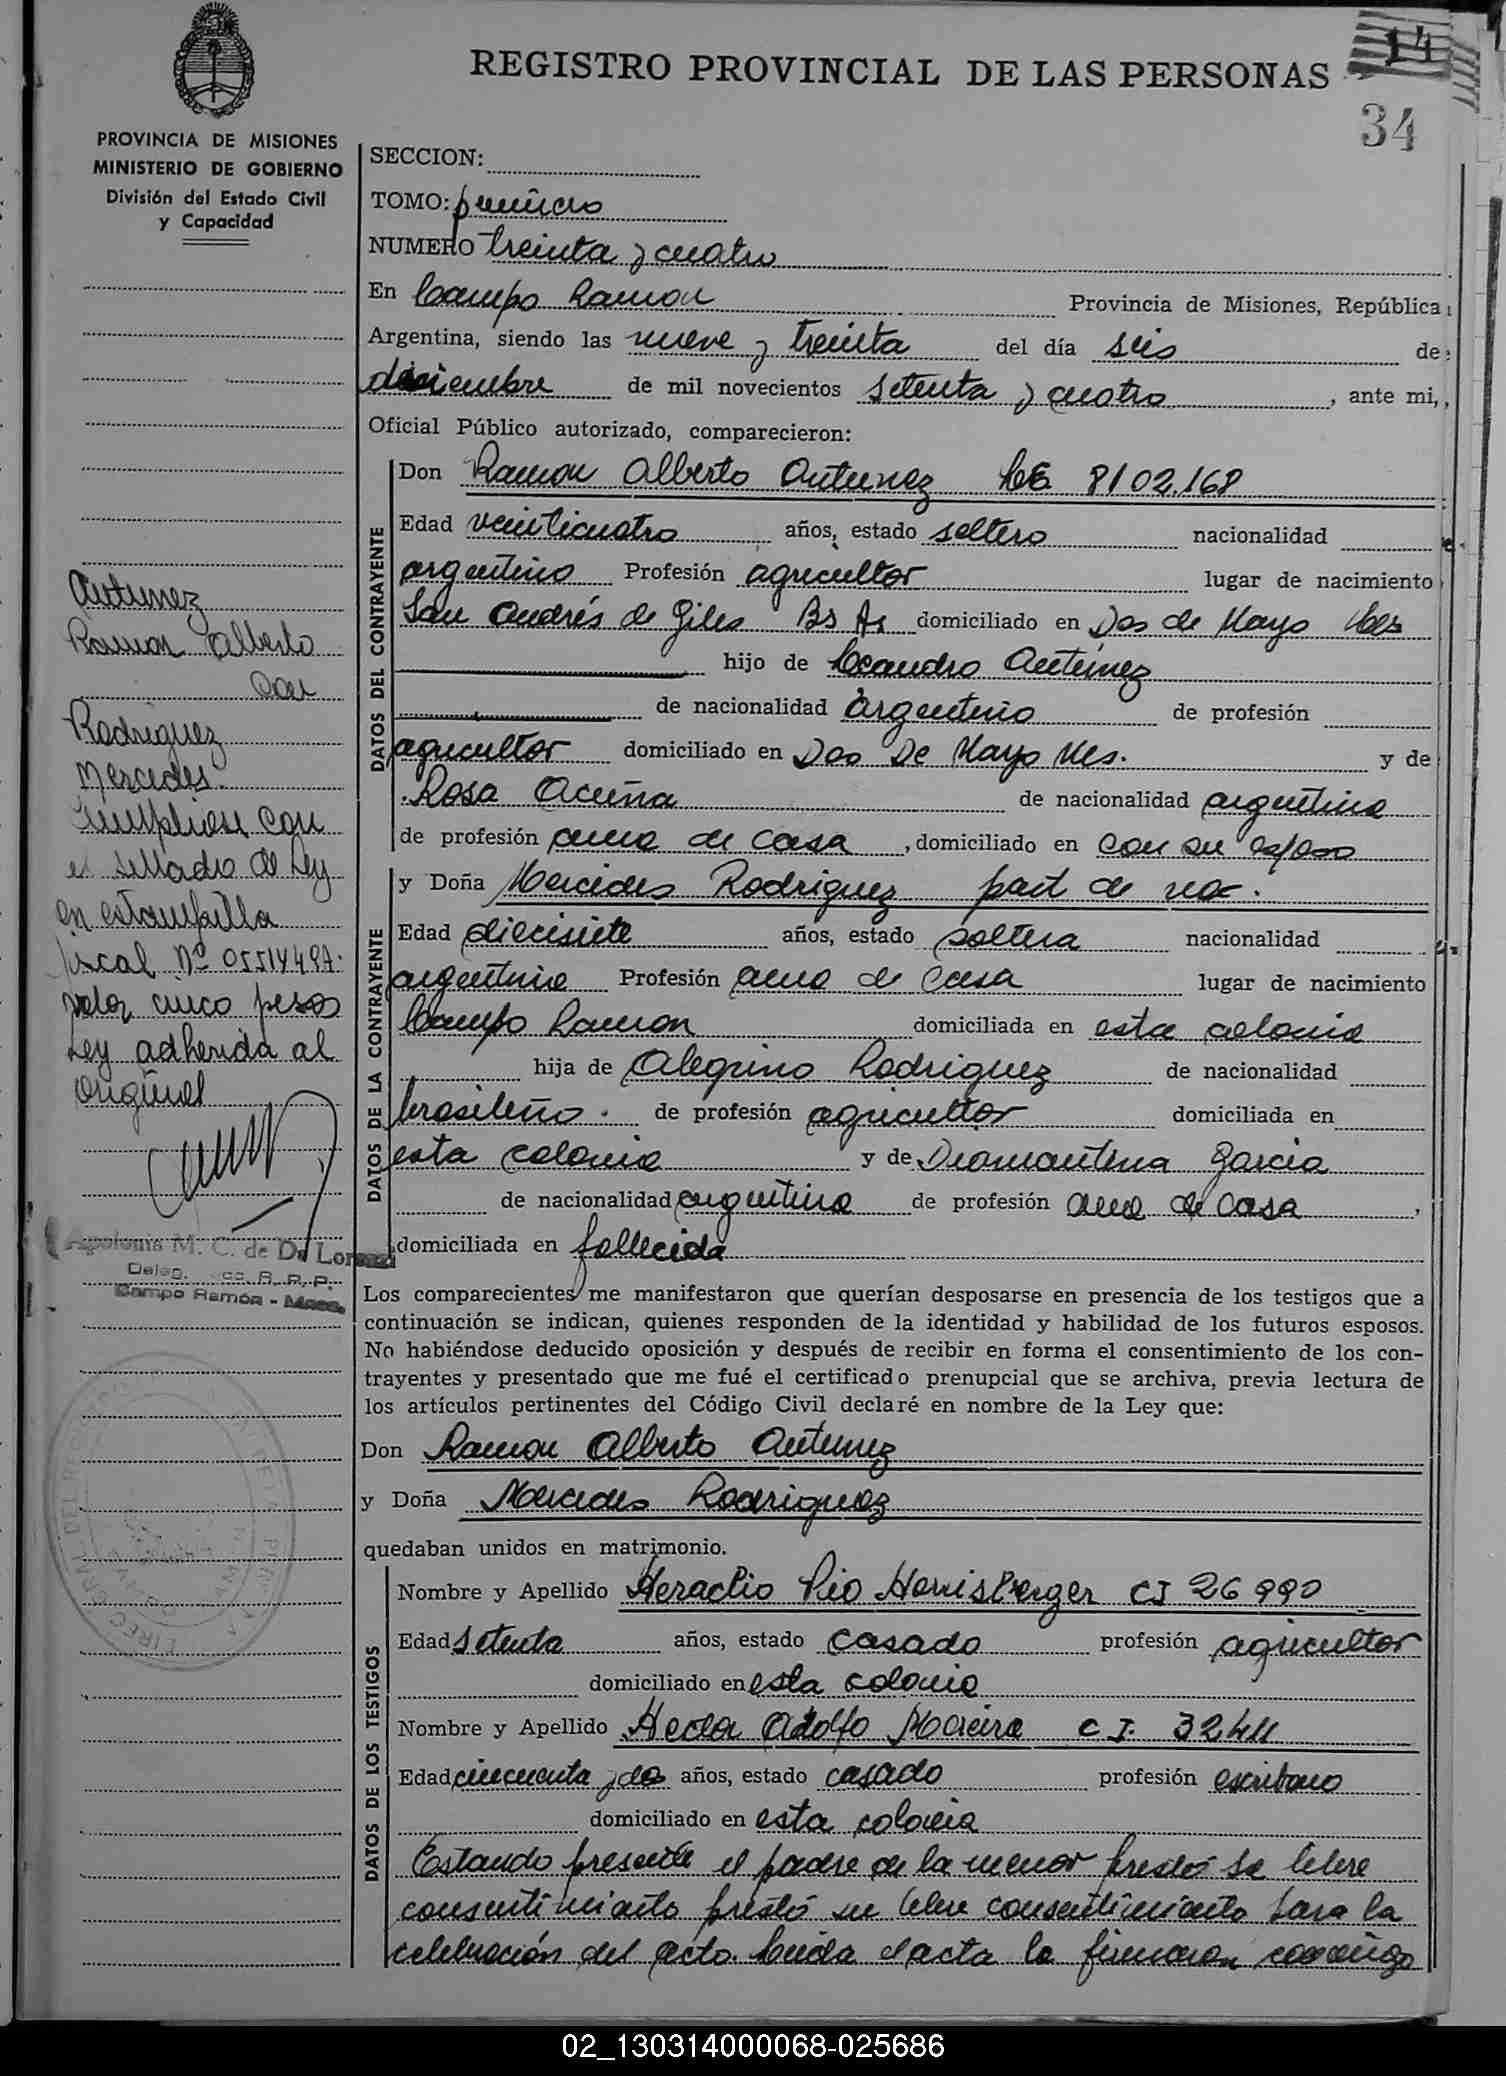 REGISTRO PROVINCIAL DE LAS PERSONAS
14
34
PROVINCIA DE MISIONES
MINISTERIO DE GOBIERNO
División del Estado Civil
y Capacidad
SECCION:
TOMO: primero
NUMERO treinta y cuatro
En Campo Ramon Provincia de Misiones, República
Argentina, siendo las nueve y treinta del día seis de
diciembre de mil novecientos setenta y cuatro, ante mi,
Oficial Público autorizado, comparecieron:
DATOS DEL CONTRAYENTE
Don Ramon Alberto Antunez 8102.168
Edad veinticuatro años, estado soltero nacionalidad
argentino Profesión agricultor lugar de nacimiento
San Andrés de Giles Bs As domiciliado en Dos de Mayo Mes
hijo de Leandro Antunez
de nacionalidad argentino de profesión
agricultor domiciliado en Dos De Mayo Mes. y de
Rosa Acuña de nacionalidad argentina
de profesión ama de casa, domiciliado en con su esposo
DATOS DE LA CONTRAYENTE
y Doña Mercedes Rodriguez part de nac.
Edad diecisiete años, estado soltera nacionalidad
argentina Profesión ama de casa lugar de nacimiento
Campo Ramon domiciliada en esta colonia
hija de Alegrino Rodriguez de nacionalidad
brasileño. de profesión agricultor domiciliada en
esta colonia y de Diamantina Garcia
de nacionalidad argentina de profesión ama de casa,
domiciliada en fallecida
Los comparecientes me manifestaron que querían desposarse en presencia de los testigos que a
continuación se indican, quienes responden de la identidad y habilidad de los futuros esposos.
No habiéndose deducido oposición y después de recibir en forma el consentimiento de los con-
trayentes y presentado que me fué el certificado prenupcial que se archiva, previa lectura de
los artículos pertinentes del Código Civil declaré en nombre de la Ley que:
Don Ramon Alberto Antunez
y Doña Mercedes Rodriguez
quedaban unidos en matrimonio.
DATOS DE LOS TESTIGOS
Nombre y Apellido Heraclio Pio Hornisberger CI 26990
Edad setenta años, estado casado profesión agricultor
domiciliado en esta colonia
Nombre y Apellido Adolfo Moreira C I.
Edad cincuenta y dos años, estado casado profesión escribano
domiciliado en esta colonia
Estando presente el padre de la menor prestó su libre
consentimiento prestó su libre consentimiento para la
celebración del acto. Leida el acta la firmaron conmigo
Antunez
Ramon Alberto
con
Rodriguez
Mercedes.
cumplion con
el sellado de Ley
en estampilla
fiscal Nº 05514497.
valor cinco pesos
Ley adherida al
original
Apolonia M. C. de De Lorenzi
Deleg. R. P. P.
Campo Ramón - Mnes.
02_130314000068-025686